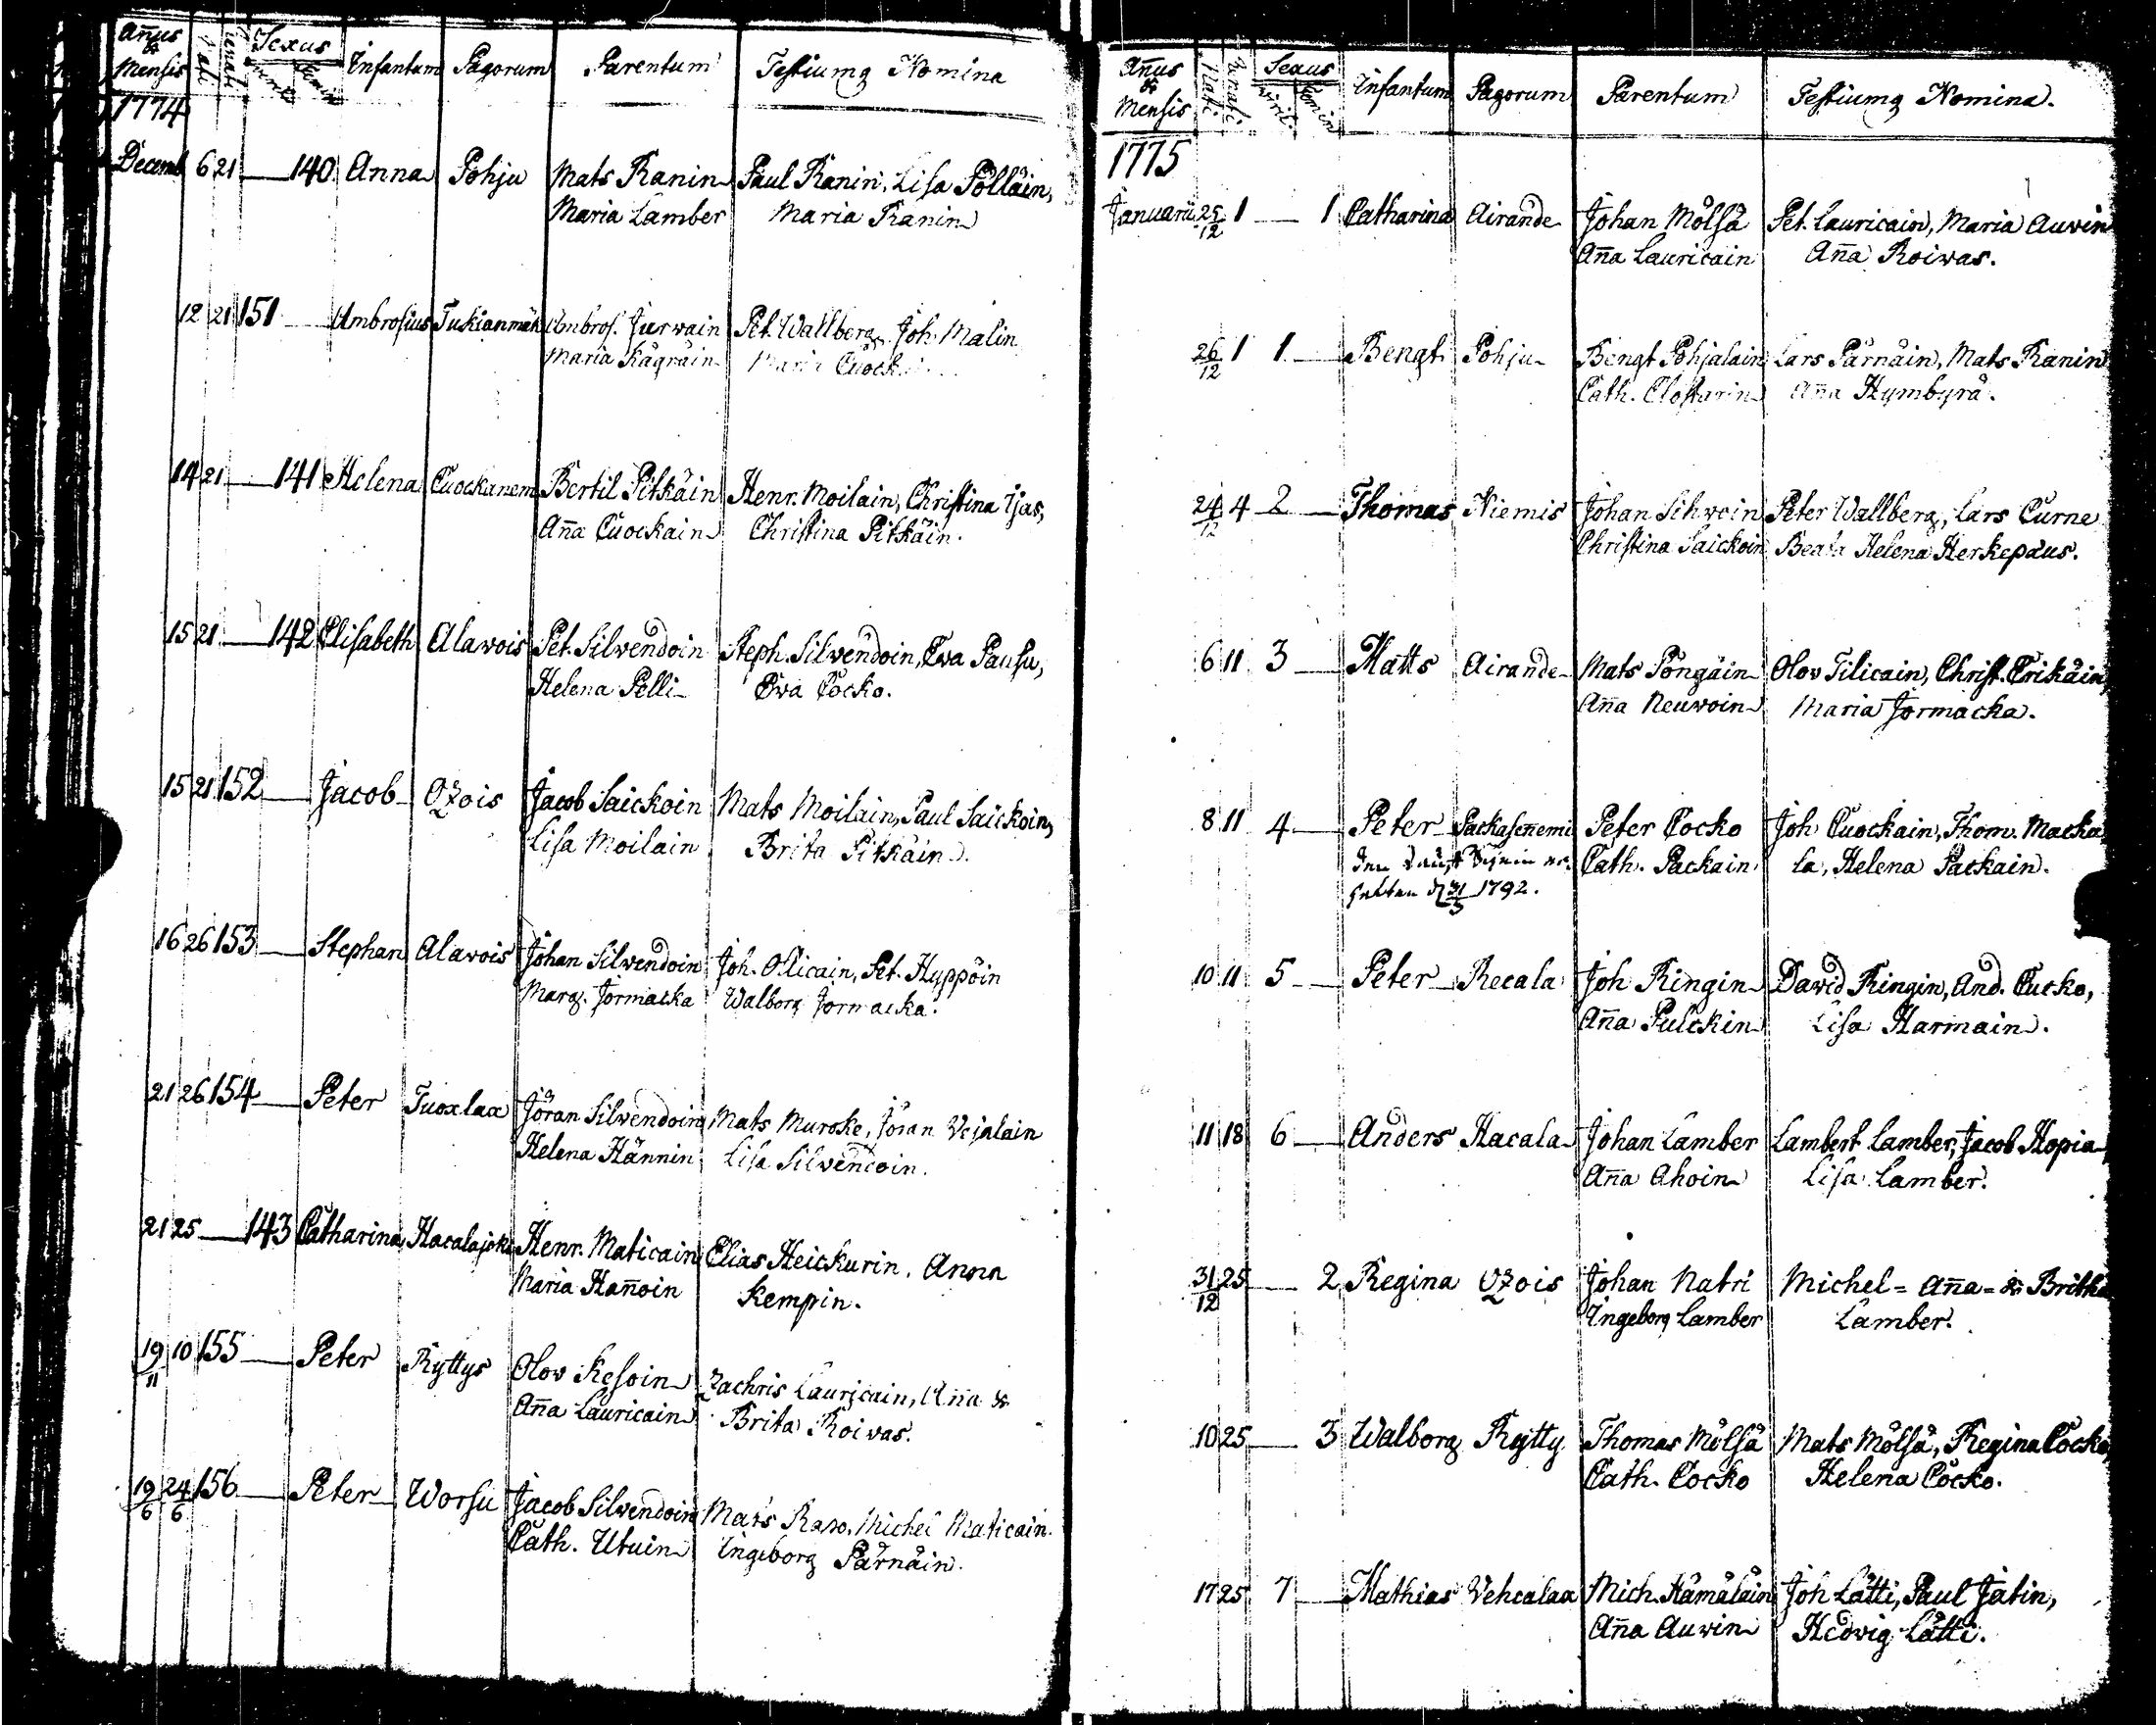 Añus & Mensis Nati Renati Sexus viril. femin Infantum Pagorum Parentum Testiumq Nomina
1774
Decemb 6 21 — 140 Anna Pohju Mats Ranin Paul Ranin, Lisa Pölläin,
Maria Lamber Maria Ranin
12 21 151 — Ambrosius Tukianmäk Ambros. Jurwain Pet. Wallberg, Joh. Malin
Maria Kägräin Maria
14 21 — 141 Helena Cuockanem Bertil Pitkäin Henr. Moilain, Christina Ijas,
Aña Cuockain Christina Pitkäin.
15 21 — 142 Elisabeth Alawois Pet. Silvendoin Steph. Silvendoin, Ewa Pausu,
Helena Pelli Ewa Cocko.
15 21 152 — Jacob Ozois Jacob Saickoin Mats Moilain, Paul Saickoin,
Lisa Moilain Brita Pitkäin.
16 26 153 — Stephan Alavois Johan Silvendoin Joh. Ollicain, Pet. Hyppöin
Marg. Jormacka Walborg Jormacka.
21 26 154 — Peter Tuoxlax Jöran Silvendoin Mats Muroke, Jöran Vejalain
Helena Hännin Lisa Silvendoin.
21 25 — 143 Catharina Hacalajoki Henr. Maticain Elias Heickurin, Anna
Maria Hañoin Kempin.
19/11 10 155 — Peter Ryttys Olov Kesoin Zachris Lauricain, Aña &
Aña Lauricain Brita Roivas.
19/6 24/6 156 — Peter Worsu Jacob Silvendoin Mats Raso, Michel Maticain.
Cath. Utuin Ingeborg Pärnäin.
Añus & Mensis Nati Renati Sexus viril. femin Infantum Pagorum Parentum Testiumq Nomina.
1775
Januarii 25/12 1 — 1 Catharina Airande Johan Mölsä Pet. Lauricain, Maria Auvin
Aña Lauricain Aña Roivas.
26/12 1 1 — Bengt Pohju Bengt Pohjalain Lars Pärnäin, Mats Ranin
Cath. Clostarin Aña Hymbyrä.
24/12 4 2 — Thomas Niemis Johan Sihvoin Peter Wallberg, Lars Curne
Christina Saickoin Beata Helena Herkepæus.
6 11 3 — Matts Airande Mats Pöngäin Olov Tilicain, Christ. Erikäin,
Aña Neuvoin Maria Jormacka.
8 11 4 — Peter Packaseñemi Peter Cocko Joh Cuockain, Thom. Macka
Cath. Packain la, Helena Packain.
31/3 1792.
10 11 5 — Peter Recala Joh Ringin David Ringin, And. Cucko,
Aña Pulckin Lisa Harmain.
11 18 6 — Anders Hacala Johan Lamber Lambert Lamber, Jacob Hopia
Aña Ahoin Lisa Lamber.
31/12 25 — 2 Regina Ozois Johan Natri Michel = Aña = & Britha
Ingeborg Lamber Lamber.
10 25 — 3 Walborg Rytty Thomas Mölsä Mats Mölsä, Regina Cocko,
Cath. Cocko Helena Cocko.
17 25 7 — Mathias Vehcalax Mich. Hämäläin Joh Lätti, Paul Jätin,
Aña Auvin Hedvig Lätti.